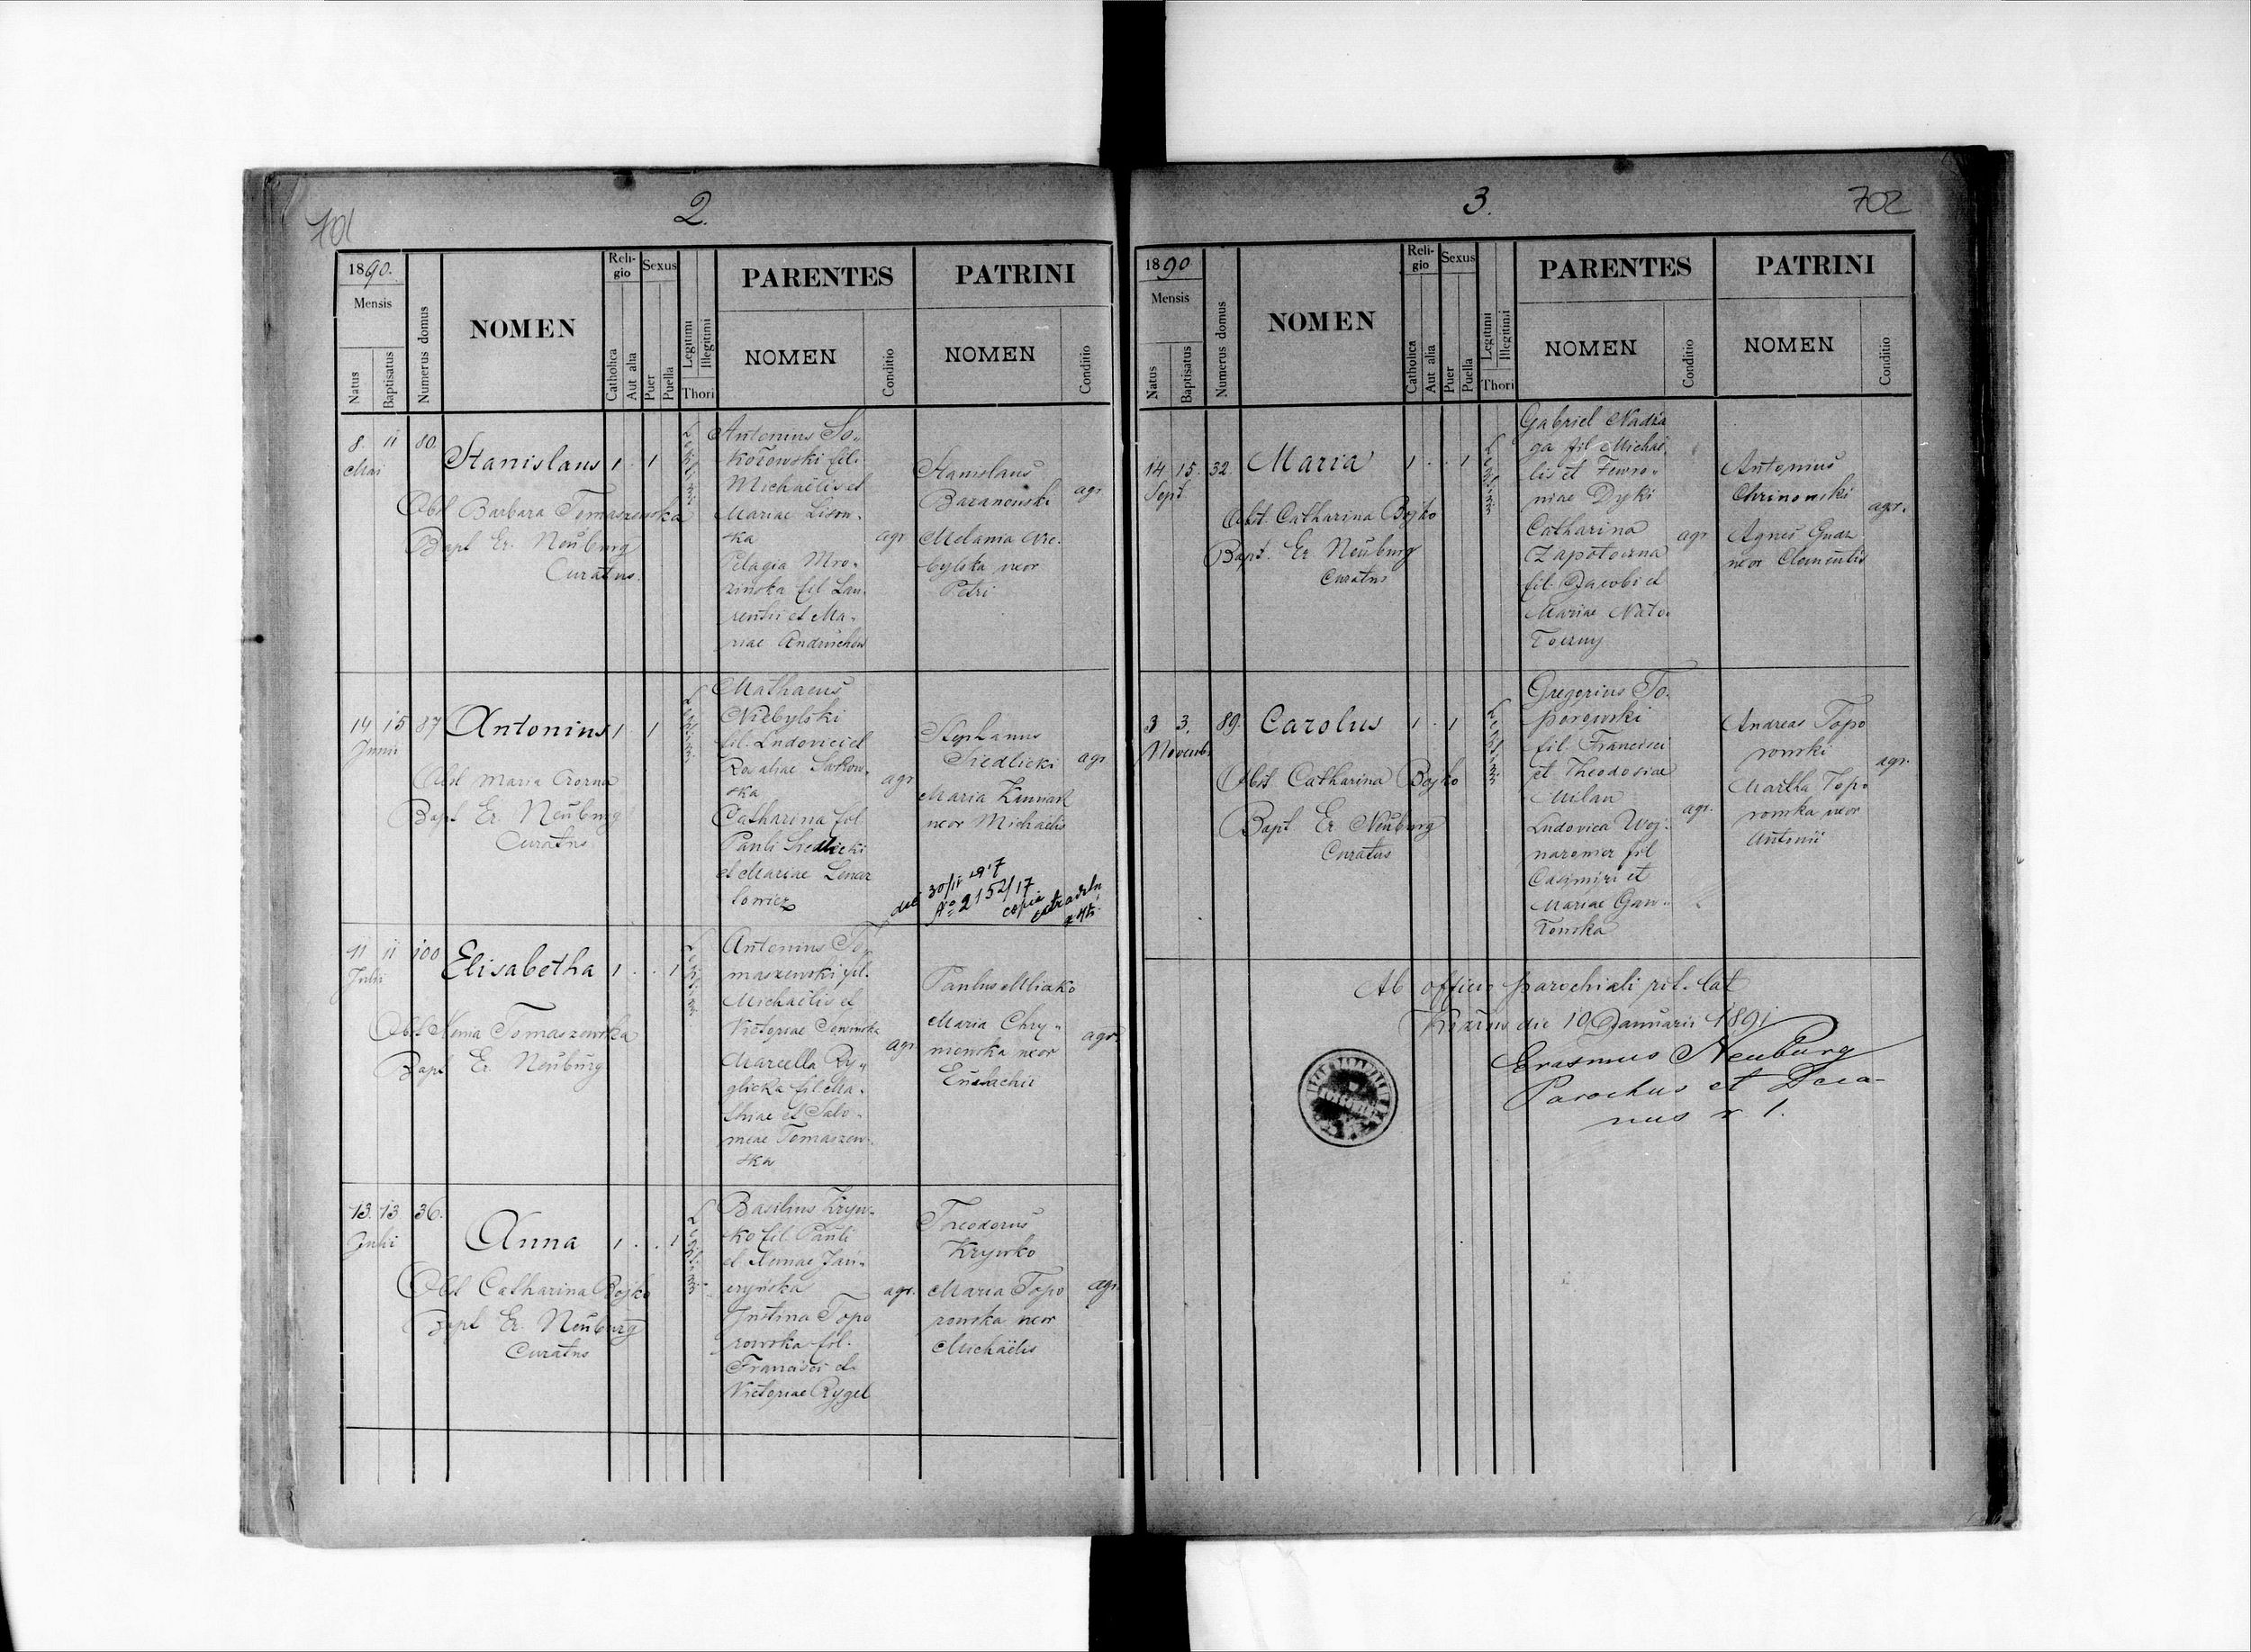 701
2.
1890.
Mensis
Natus
Baptisatus
Numerus domus
NOMEN
Reli-
gio
Catholica
Aut alia
Sexus
Puer
Puella
Legitimi
Illegitimi
Thori
PARENTES
NOMEN
Conditio
PATRINI
NOMEN
Conditio
8. 11 80. Stanislaus 1 . 1
Mai
Obst Barbara Tomaszewska
Bapt Er. Neuburg
Curatus.
Legitimi
Antonius So-
kołowski fil.
Michaelis et
Mariae Lisow-
ska
Pelagia Mro-
zinska fil Lau-
rentii et Ma-
riae Andruchow
agr
Stanislaus
Baranowski
Melania Nie-
bylska uxor
Petri
agr
14 15 87 Antonius 1 . 1
Junii
Obst Maria Czorna
Bapt Er. Neuburg
Curatus
Legitimi
Mathaeus
Niebylski
fil. Ludovici et
Rosaliae
ska
Catharina fil
Pauli Siedlicki
et Mariae
agr
Stephanus
Siedlicki
Maria
uxor Michaelis
agr
die 30/11 1917
No 2152/17
copia
11 11 100 Elisabetha 1 . . 1
Julii
Obst Anna Tomaszewska
Bapt Er. Neuburg
Legitimi
Antonius To-
maszewski fil.
Michaelis et
Victoriae Sowinska
Marcella Ry-
glicka fil Ma-
thiae et Salo-
meae Tomaszew-
ska
agr
Paulus Mliako
Maria Chry-
niewska uxor
Eustachii
agr.
13. 13 36. Anna 1 . . 1
Julii
Obst Catharina Bojko
Bapt Er. Neuburg
Curatus
Legitimi
Basilius Kryw-
ko fil. Pauli
et Annae
Justina Topo
rowska fil.
Francisci et
Victoriae Rygel
agr.
Theodorus
Krywko
Maria Topo
rowska uxor
Michaelis
agr.
3.
702
1890
Mensis
Natus
Baptisatus
Numerus domus
NOMEN
Reli-
gio
Catholica
Aut alia
Sexus
Puer
Puella
Legitimi
Illegitimi
Thori
PARENTES
NOMEN
Conditio
PATRINI
NOMEN
Conditio
14 15. 32. Maria 1 . . 1
Sept.
Obst. Catharina Bojko
Bapt. Er Neuburg
Curatus
Legitimi
Gabriel Nadra
ga fil Michae-
lis et Fewro-
niae Dyki
Catharina
Zapotoczna
fil. Jacobi et
Mariae
agr
Antonius
Chrinowski
Agnes Gudz
uxor Clementis
agr.
3 3. 89. Carolus 1 . 1
Novemb.
Obst Catharina Bojko
Bapt Er Neuburg
Curatus
Legitimi
Gregorius To-
porowski
fil. Francisci
et Theodosiae
Milan
Ludovica Woj-
narowicz fil
Casimiri et
Mariae Gaw-
łowska
agr.
Andreas Topo
rowski
Martha Topo
rowska uxor
Antonii
agr.
Ab officio parochiali rit. lat
die 10 Januarii 1891
Erasmus Neuburg
Parochus et Deca-
nus r. l.